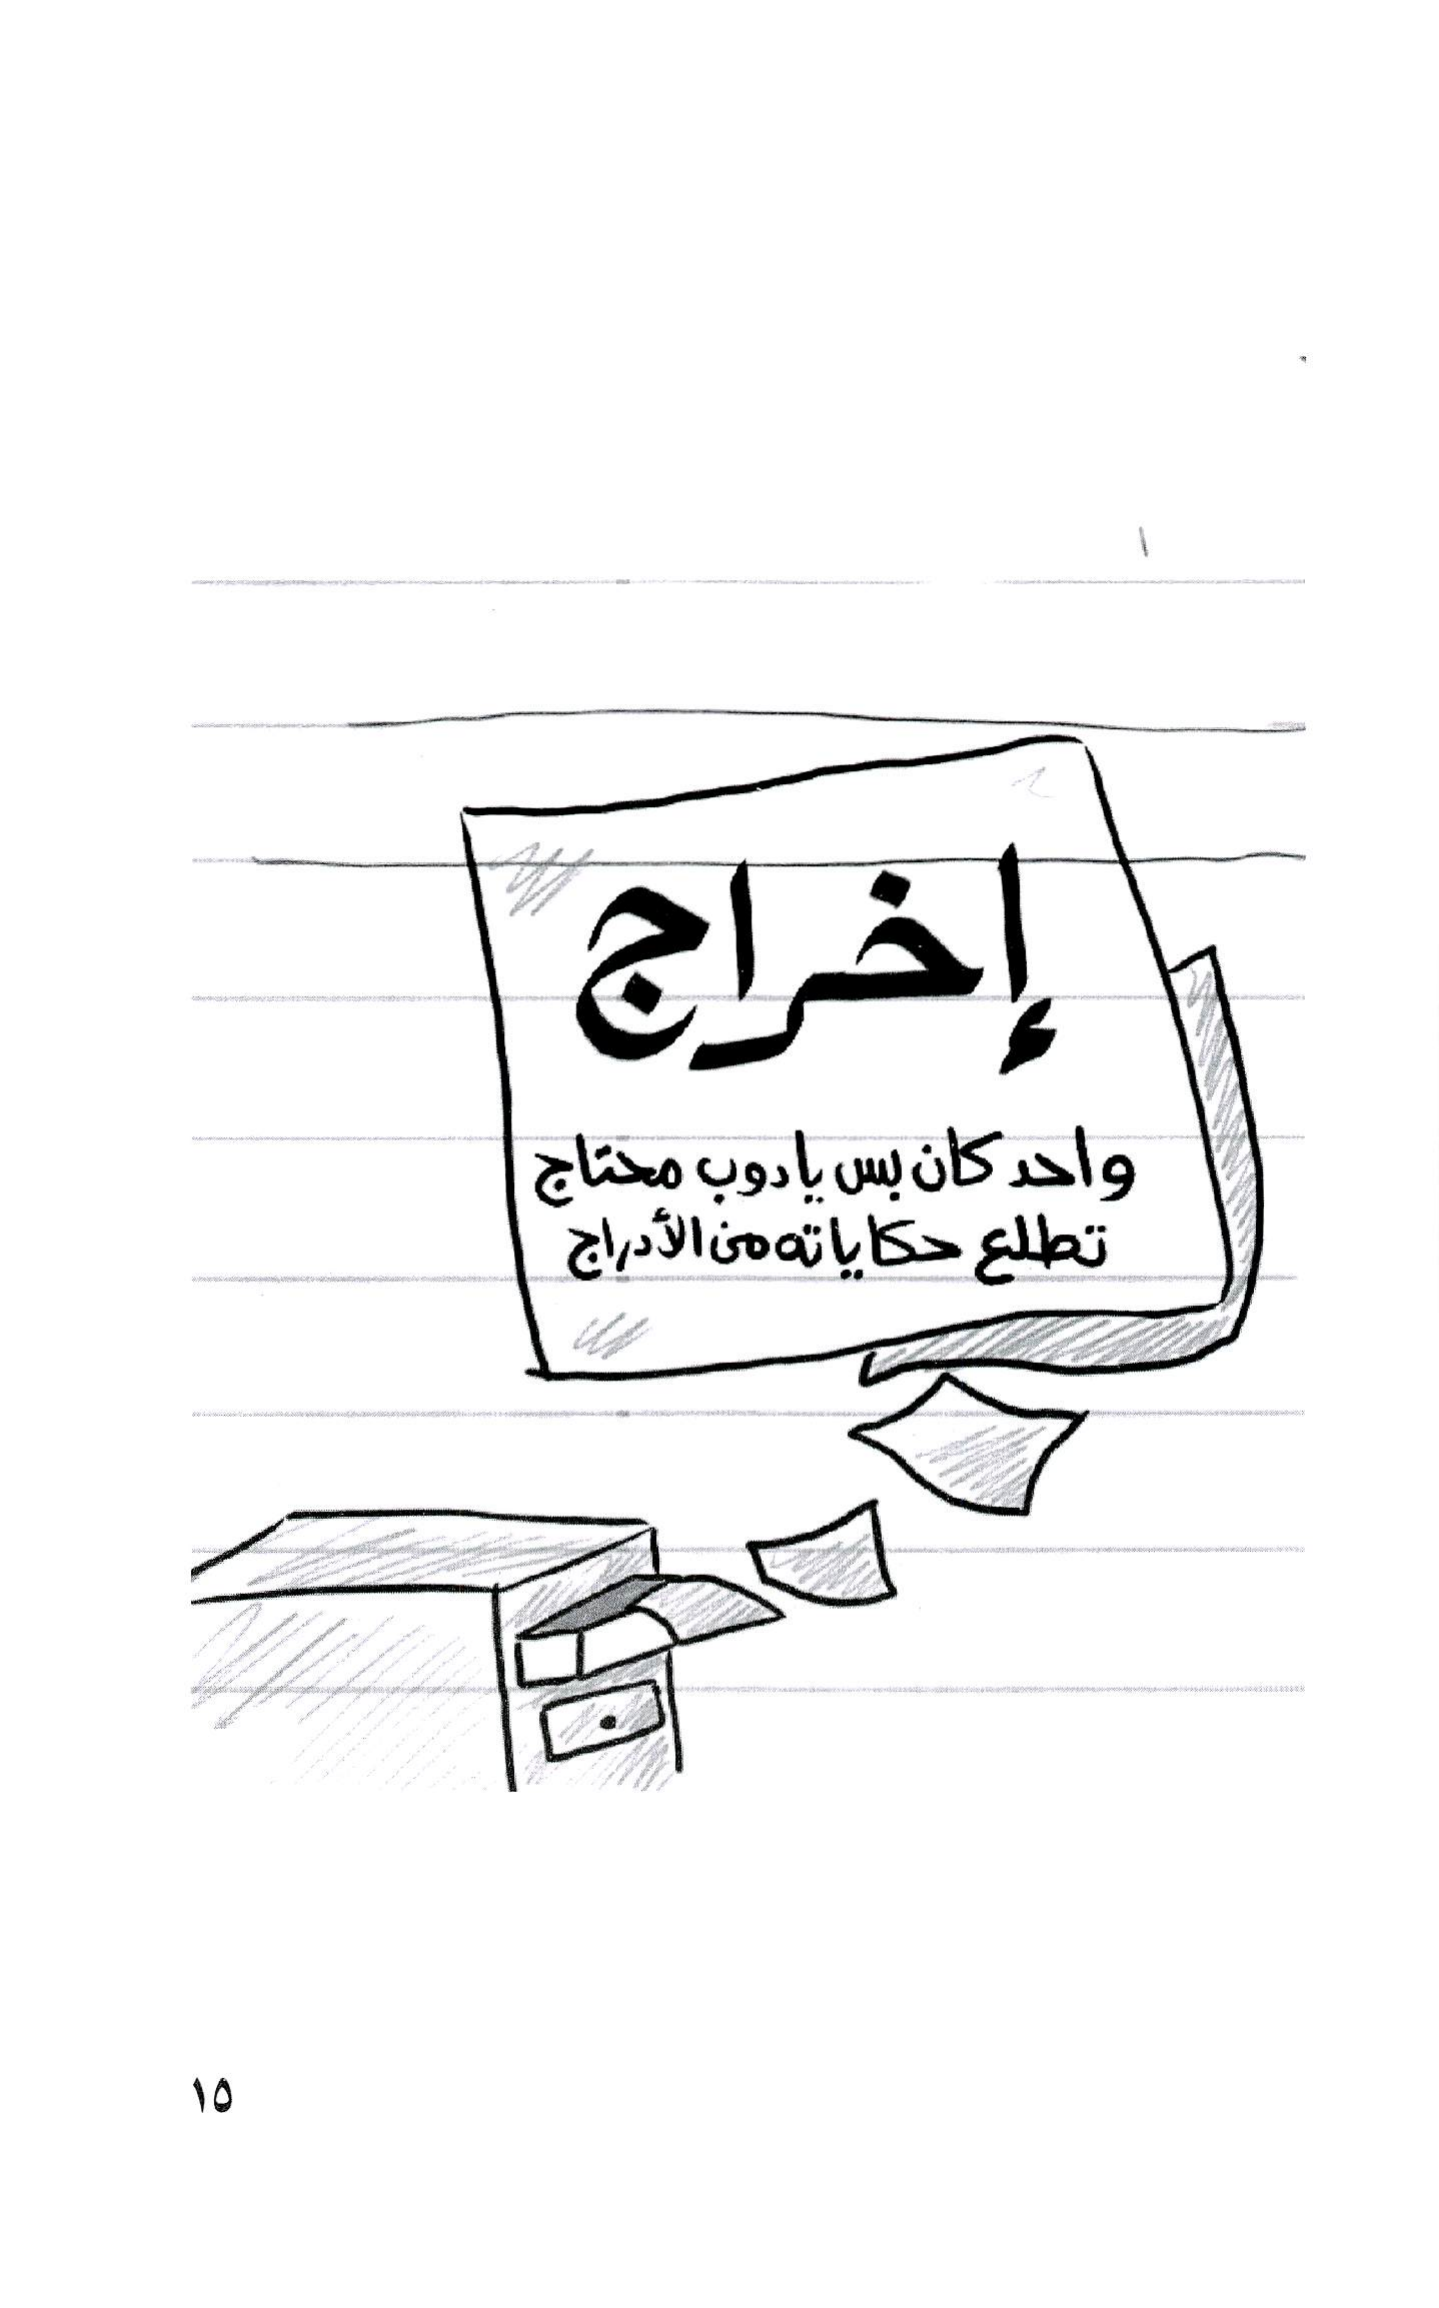 إخراج
واحد كان بس يادوب محتاج
تطلع حكاياته من الأدراج
١٥